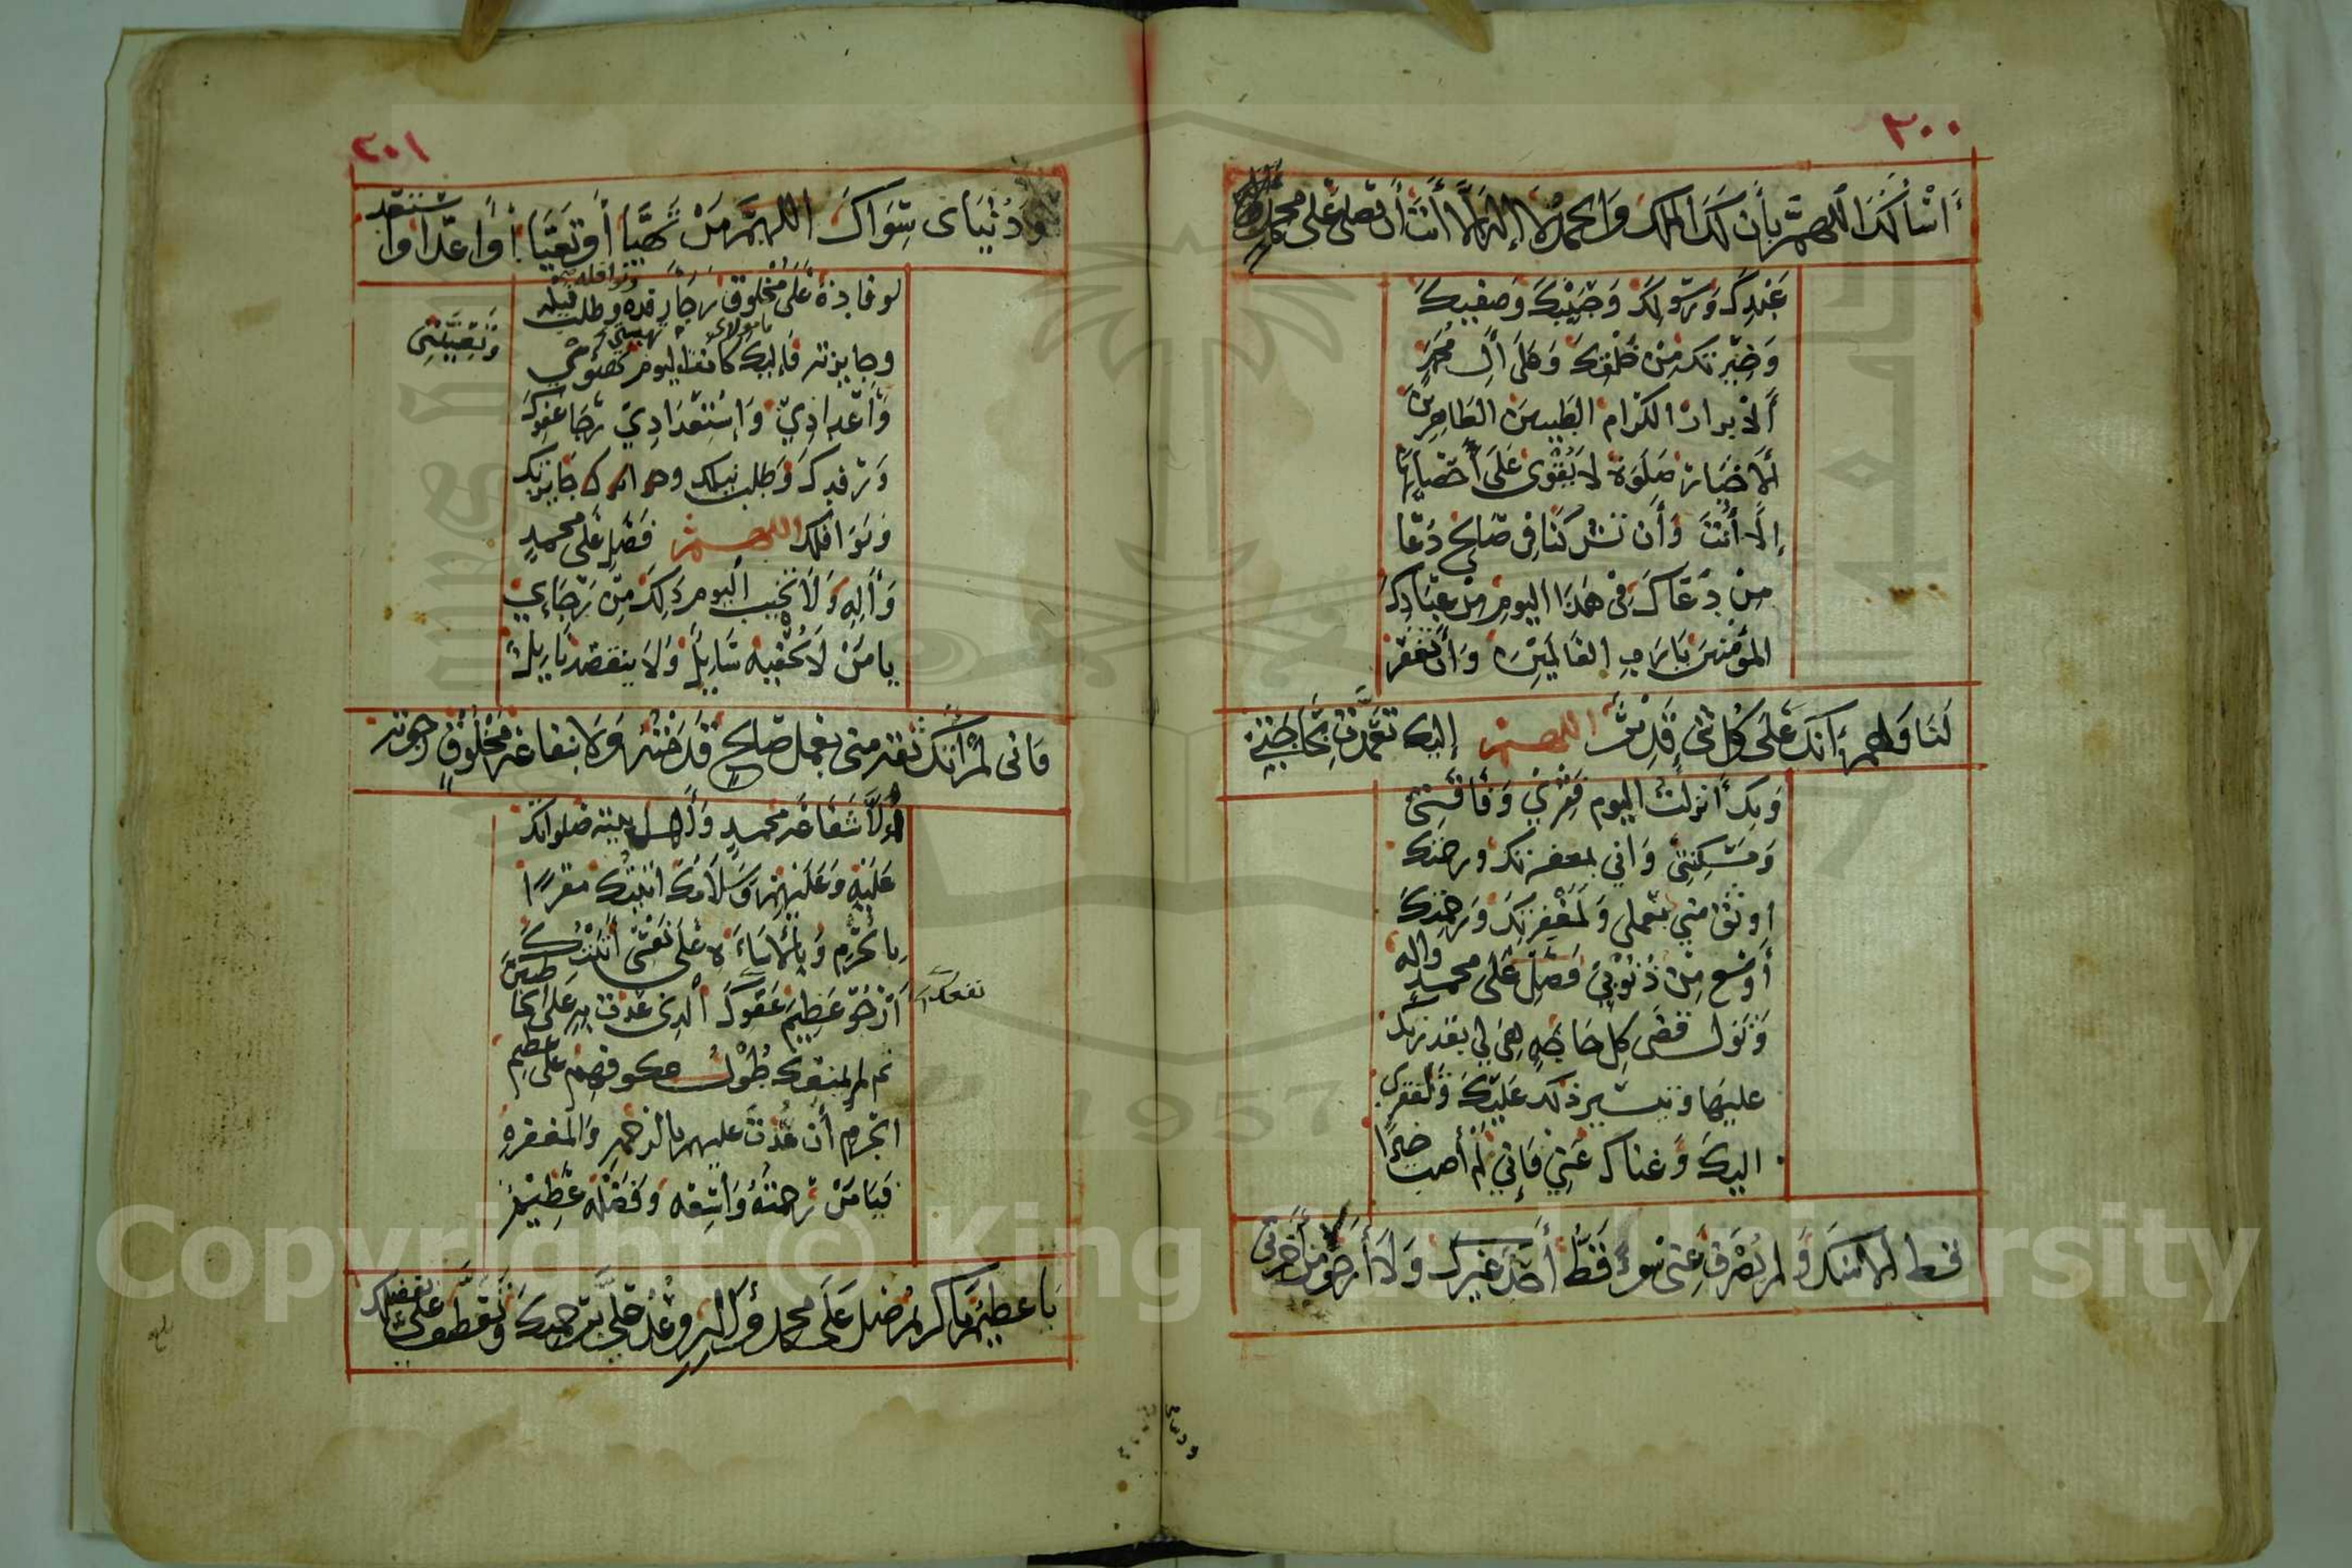 ٢٠٠
أَسْأَلُكَ اللهم بأن لك الملك والحمد لا إله إلا أنت أن تصلي على محمد
عبدك ورسولك وحبيبك وصفيك
وخيرتك من خلقك وعلى آل محمد
الأبرار الكرام الطيبين الطاهرين
الأخيار صلوة لا يقوى على احصائها
إلا أنت وأن تشركنا في صالح دعا
من دعاك في هذا اليوم من عبادك
المؤمنين يا رب العالمين وأن تغفر
لنا ولهم إنك على كل شيء قدير اللهم إليك تعمدت بحاجتي
وبك أنزلت اليوم فقري وفاقتي
ومسكنتي واني بمغفرتك ورحمتك
اوثق مني بعملي ولمغفرتك ورحمتك
أوسع من ذنوبي فصل على محمد واله
وتول قضى كل حاجة هي لي بقدرتك
عليها وتيسير ذلك عليك ولفقري
اليك وغناك عني فإني لم أصب خيرا
قط الا منك ولم يصرف عني سوء قط أحد غيرك ولا أرجو لأمر آخرتي
٢٠١
ودنياى سواك اللهم من تهيا أو تعبا أو أعد أو استعد
لوفادة على مخلوق رجا رفده ونوافله وطلب نيله
وجايزته فإليك يا مولاي كانت اليوم تهيئتي
وتعبيتي
وأعدادي وإستعدادي رجا عفوك
ورفدك وطلب نيلك وجايزتك
ونوافلك اللهم فصل على محمد
وأله ولا تخيب اليوم ذلك من رجائي
يا من لا يحفيه سايل ولا ينقصه نايل
فاني لم آتك ثقة مني بعمل صالح قدمته ولا شفاعة مخلوق رجوته
إلا شفاعة محمد وأهل بيته صلواتك
عليه وعليهم وسلامك اتيتك مقرا
بالجرم والاساءة على نفسي أتيتك
أرجو عظيم عفوك الذي عدت به على الخاطين
ثم لم يمنعك طول عكوفهم على عظيم
الجرم أن عدت عليهم بالرحمة والمغفرة
فيا من رحمته واسعه وفضله عظيم
يا عظيم يا كريم صل على محمد وآله وعد علي برحمتك وتعطف علي بفضلك
Copyright © King Saud University
1957